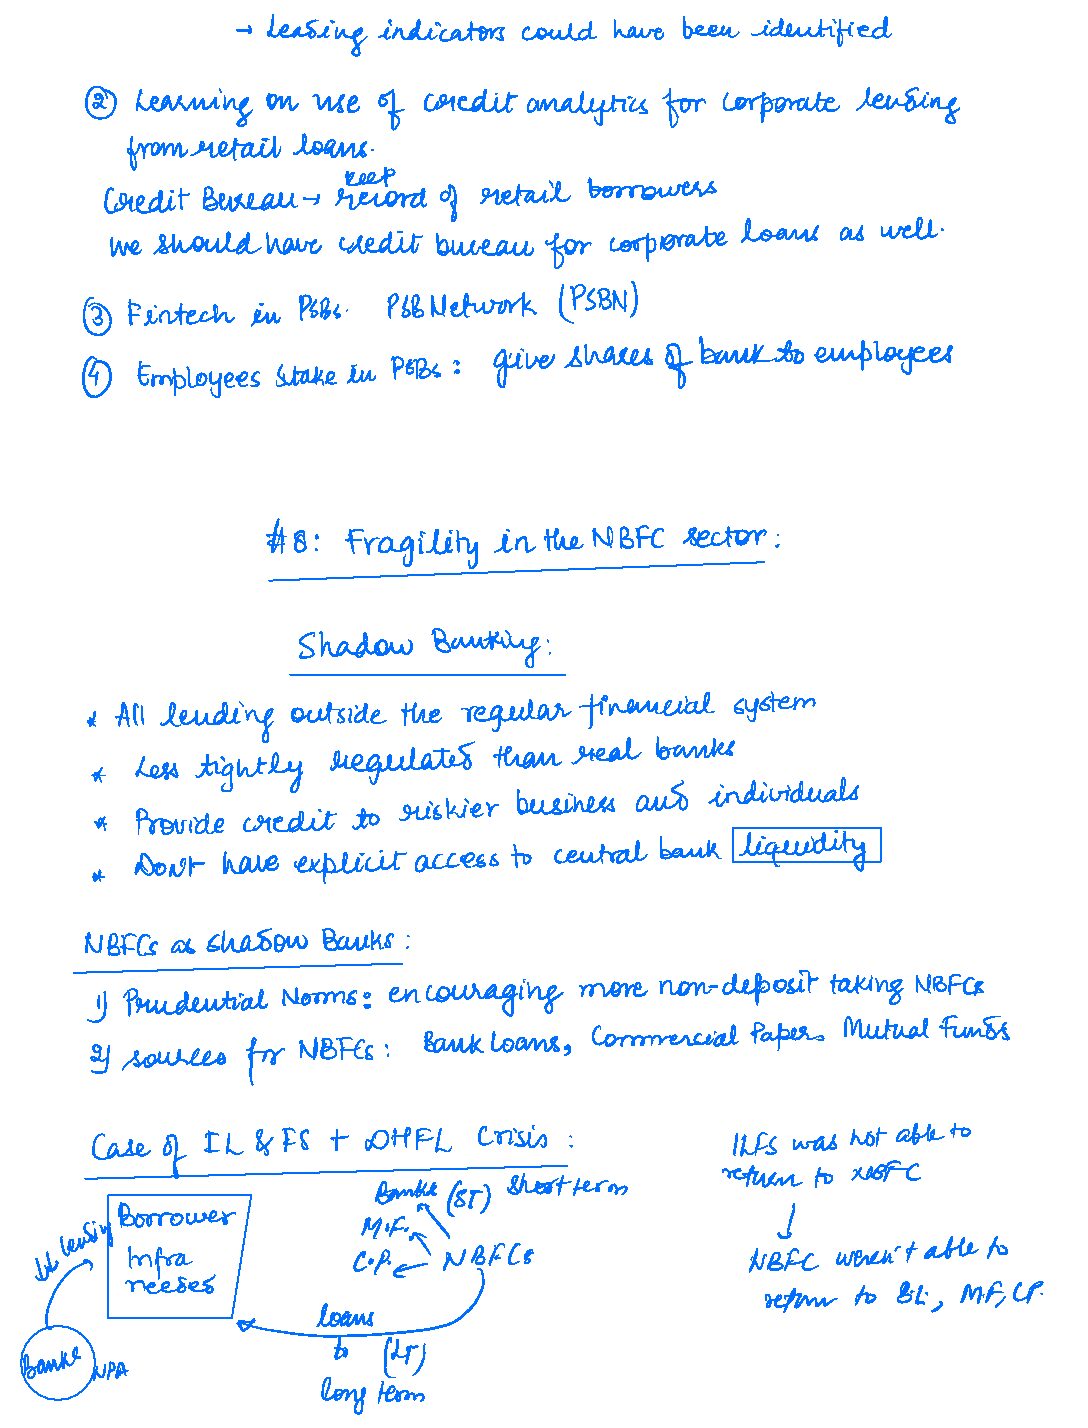 → Leading indicators could have been identified
② Learning on use of credit analytics for corporate lending
from retail loans.
keep
Credit Bureau → record of retail borrowers
We should have credit bureau for corporate loans as well.
③ Fintech in PSBs. PSB Network (PSBN)
④ Employees stake in PSBs: give shares of bank to employees
#8: Fragility in the NBFC sector:
Shadow Banking:
* All lending outside the regular financial system
* Less tightly regulated than real banks
* Provide credit to riskier business and individuals
* Don't have explicit access to central bank liquidity
NBFCs as shadow Banks:
1) Prudential Norms: encouraging more non-deposit taking NBFCs
2) sources for NBFCs: Bank loans, Commercial Papers Mutual Funds
Case of IL&FS + DHFL Crisis:
ILFS was not able to
return to NBFC
Banks (ST) Short term
Borrower
M.F.
Infra
needs
C.P. NBFCs
lending
NBFC weren't able to
return to BL, M.F, CP.
loans
to (LT)
long term
Banks NPA